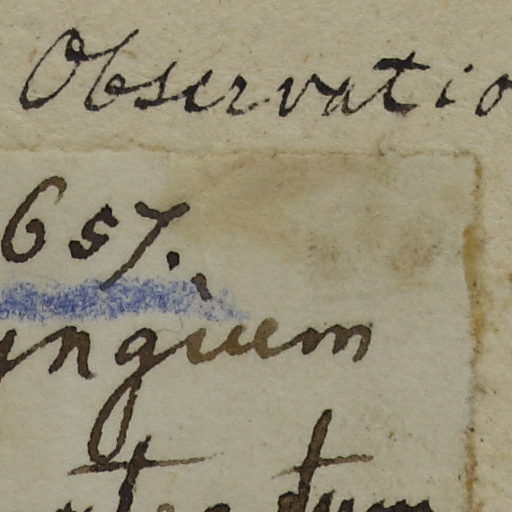 Observatio
657.
ynguem